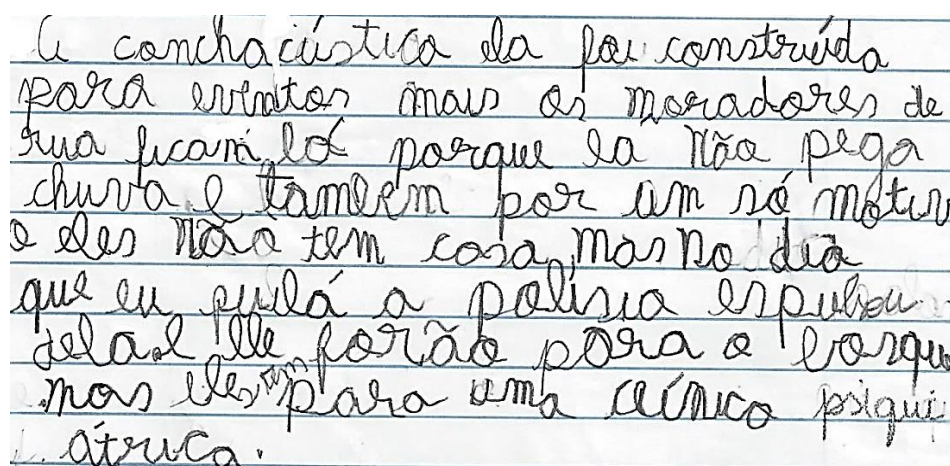 A conchacústica ela foi construída
para eventos mais os moradores de
rua ficam, lá porque la não pega
chuva e também por um só motiv
o eles não tem casa, mas no dia
que eu fui lá a polísia espulsou
dela e lle forão para o bosque
mas eles em para uma clínica psiqui
átrica.